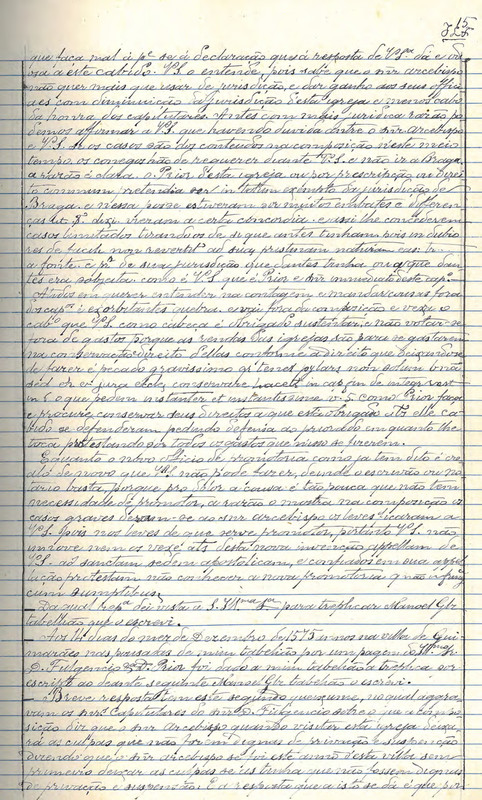 15
que faça mal à p.e se á declaração que á resposta de V.S.ª dá e
a este cabido. V.S. o entende, pois sabe que o snr arcebispo
não quer mais que usar de jurisdicção, e dar ganho aos seus offici
aes com diminuição da jurisdicção desta igreja e menos cabo
da honra dos capitulares. Antes com mais juridica razão po
demos affirmar a V.S. que havendo duvida entre o snr Arcebispo
e V.S. se os casos são dos conteudos na composição neste meio
tempo os conegos hão de requerer diante V.S. e não ir a Braga
a razão é clara. o Prior desta igreja ou por prescripção ou direi
to commum pretendia ser in totum exempto da jurisdicção de
Braga. e nessa posse estiveram por muitos embates e differen
ças vieram a certa concordia. e assi lhe concederem
casos limitados tirando-os de si que antes tinham pois in dubio
res de facile revertit ad suam pristinam naturam
fonte. e p.ª de sua jurisdicção que dantes tinha ou a que dan
tes era sobjeita como é V.S. que é Prior e snr immediato deste cap.º
querer entender na contagem e mandar cursores fora
é exorbitante quebra e vai fora da composição e vexa o
cab.º que V.S. como cabeça é obrigado sustentar, e não votar-se
fora de gastos porque as rendas das igrejas são para se gastarem
na conservação e direito dellas conforme a direito que deixando-se
de fazer é peccado gravissimo
sed jura eccles. conservare
que pedem instanter et instantissime V.S. como Prior faça
e procure conservar seus direitos a que está obrigado. Elle ca
bido se defenderam pedindo defensa ao priorado em quanto lhe
toca protestando por todos os gastos que nisso se fizerem.
E quanto a novo officio de promotoria como ja tem dito é cre
alo de novo que V.S. não pode fazer, e o escrivão ou no
tario basta, porque a causa é tão pouca que não tem
necessidade de promotor, a razão o mostra na composição os
casos graves deram-se ao snr arcebispo os leves ficaram a
V.S. pois nos leves de que serve promotor, portanto V.S. não
innove nem os vexe, alias desta nova invenção appellam de
V.S. ad sanctam sedem apostolicam, e confiados em sua
protestam não conhecer a nova promotoria
cum sumptibus.
Da qual dei vista a S. Ill.ma para treplicar Manoel Glz
tabellião que o escrevi.
Aos 14 dias do mez de Dezembro de 1575 annos na villa de Gui
marães nas pousadas de mim tabellião por um pagem do Ill.mo Sr
D. Fulgencio D. Prior foi dado a mim tabellião a treplica por
escripto ao deante seguinte Manoel Glz tabellião o escrevi.
Breve resposta tem este segundo queixume, no qual aggra
vam os snrs Capitulares do snr D. Fulgencio sobre o que a compo
sição diz que o snr Arcebispo quando visitar esta igreja deixa
rá as culpas que não forem dignas de privação e suspensão
dizendo que o snr arcebispo se foi este anno desta villa sem
primeiro deixar as culpas se as tinha que não fossem dignas
de privação e suspensão. E a resposta que a isto se dá é que por